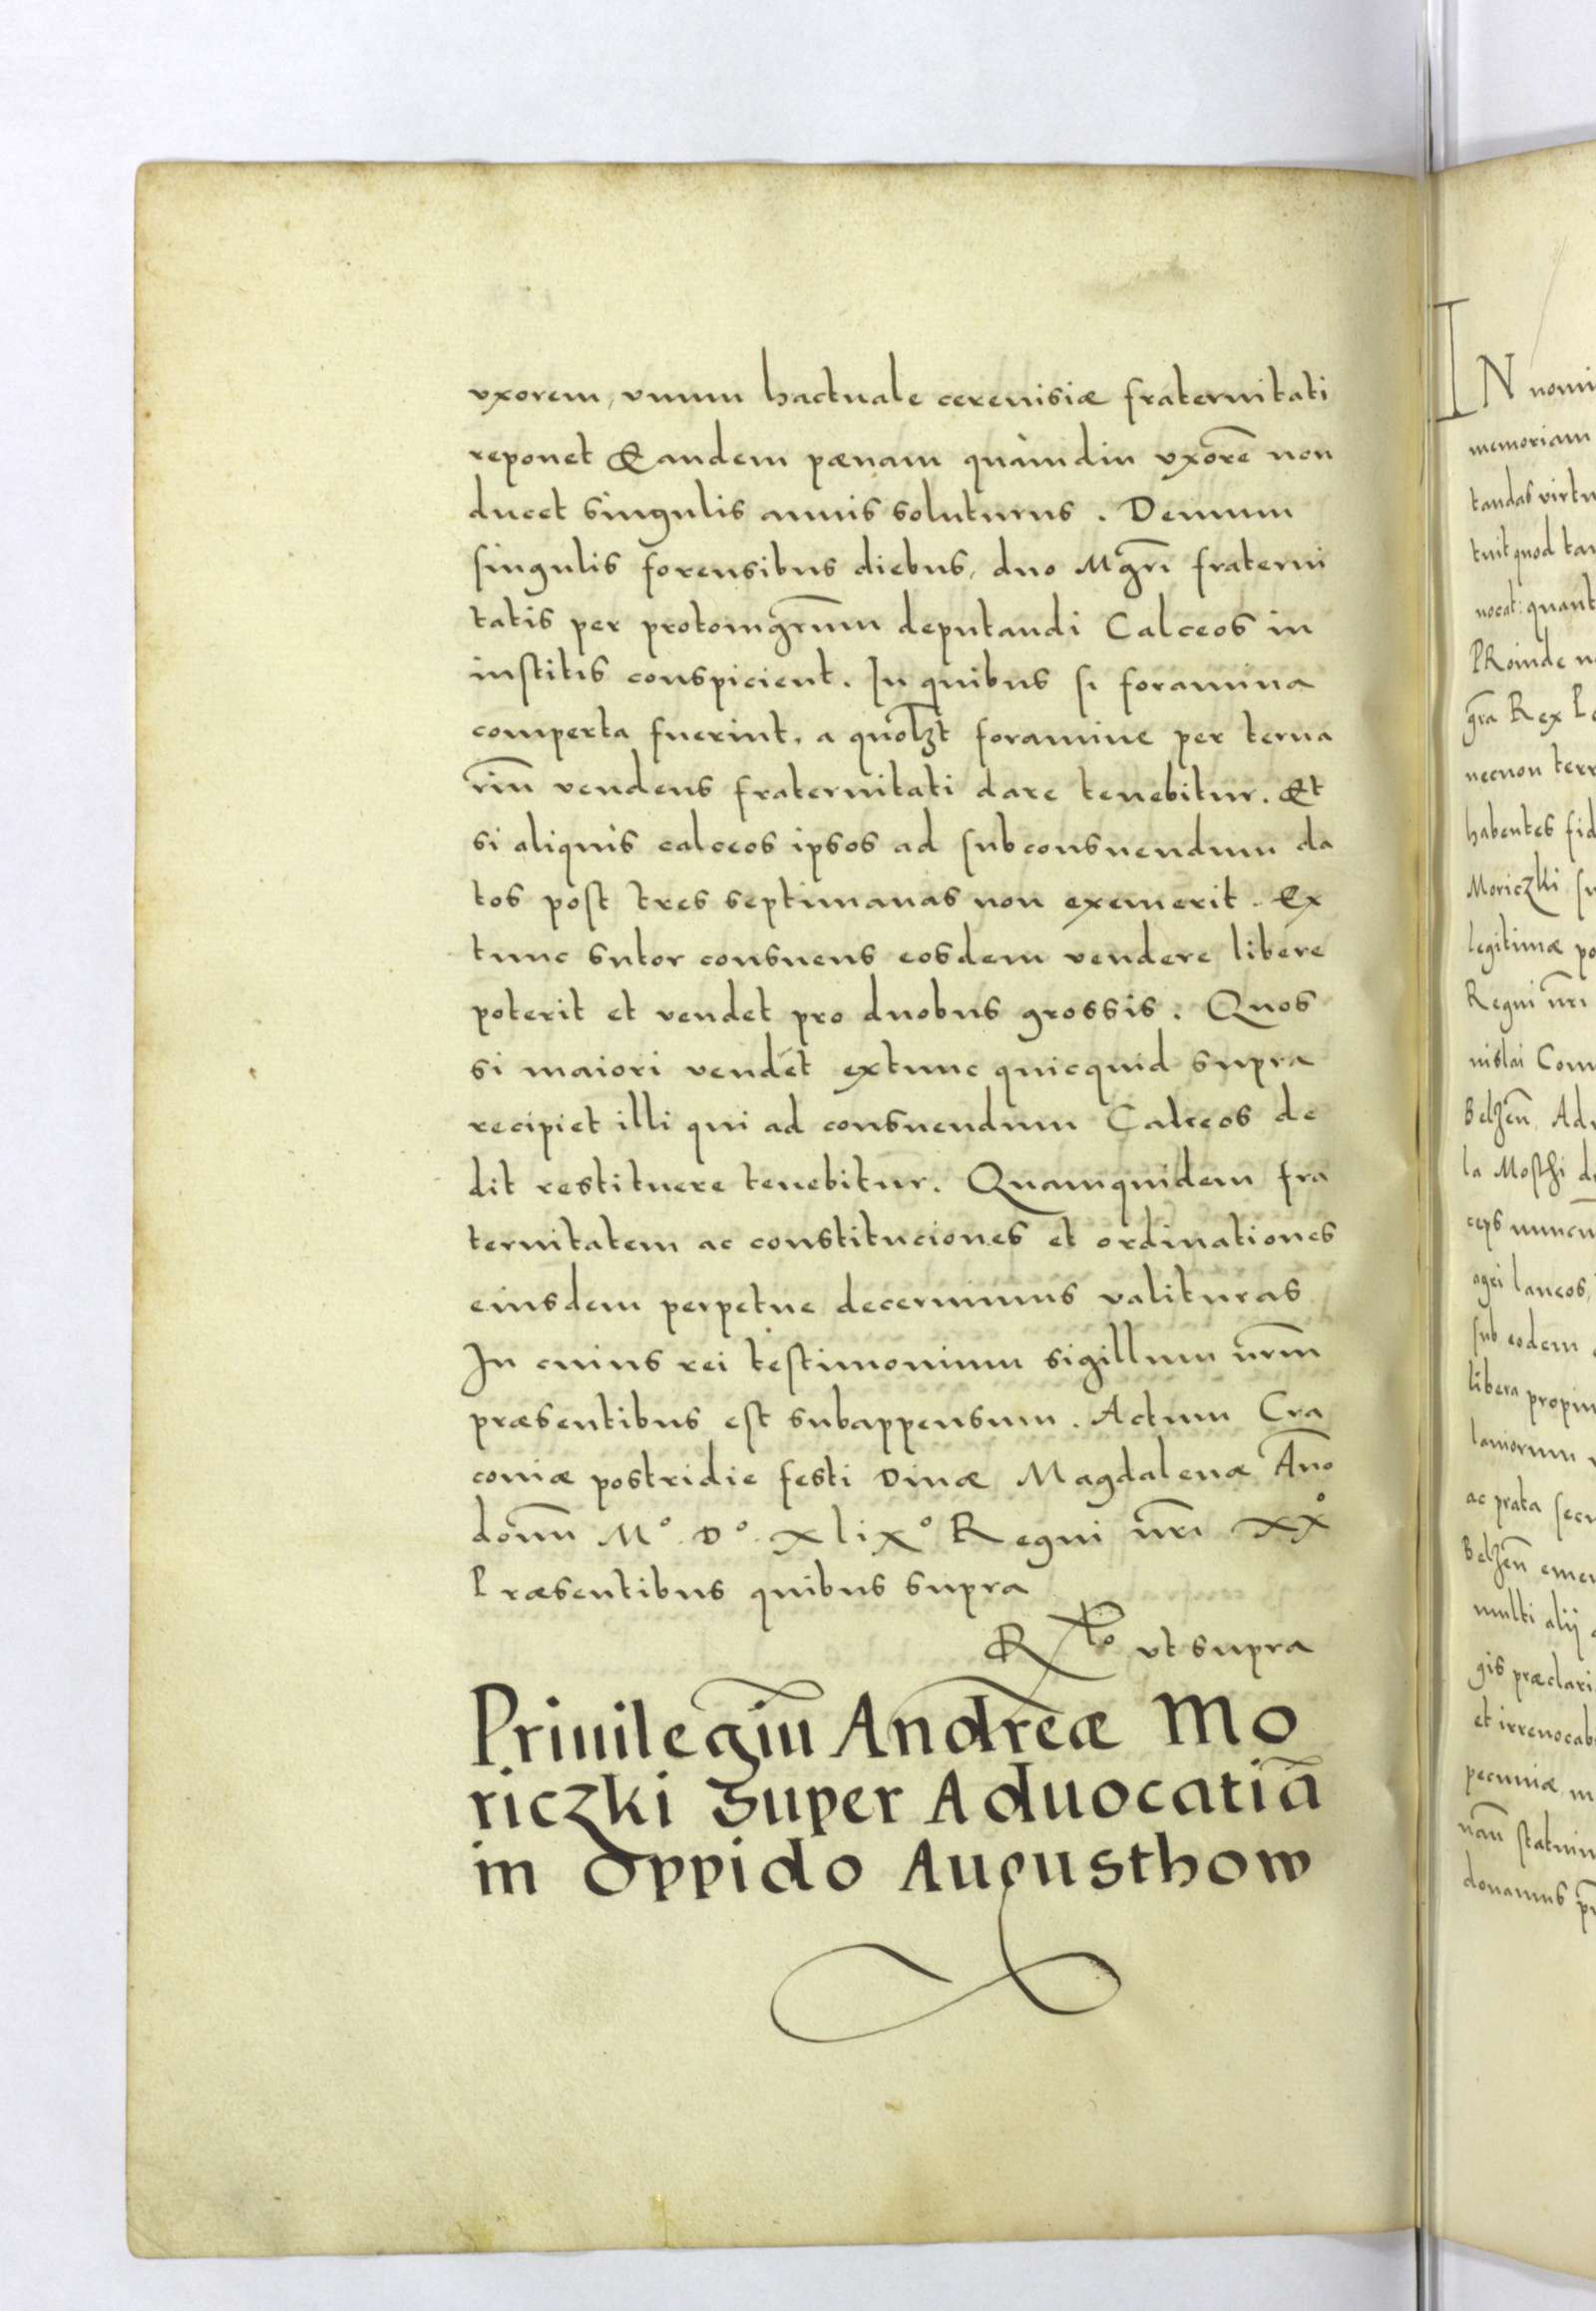 vxorem, vnum hactuale cereuisiæ fraternitati
reponet & eandem pænam quàmdiu vxorē non
ducet singulis annis soluturus. Demum
singulis forensibus diebus, duo Mgr̄i fraterni
tatis per protomgr̄um deputandi Calceos in
institis conspicient. In quibus si foramina
comperta fuerint, a quolʒt foramine per terna
riū vendens fraternitati dare tenebitur. Et
si aliquis calceos ipsos ad subconsuendum da
tos post tres septimanas non exemerit. Ex
tunc sutor consuens eosdem vendere libere
poterit et vendet pro duobus grossis. Quos
si maiori vendet extunc quicquid supra
recipiet illi qui ad consuendum Calceos de
dit restituere tenebitur. Quamquidem fra
ternitatem ac constituciones et ordinationes
eiusdem perpetue decernimus valituras
In cuius rei testimonium sigillum nr̄m
præsentibus est subappensum. Actum Cra
couiæ postridie festi Diuæ Magdalenæ Āno
domī Mº. Dº. xlixº Regni nr̄i xxº
Præsentibus quibus supra
Rlº vt supra
Priuilegiū Andreæ Mo
riczki Super Aduocatiā
in Oppido Augusthow
IN nomi
memoriam
tandas virtu
tuit quod tan
uocat: quant
PRoinde n
gr̄a Rex Po
necnon terr
habentes fid
Moriczki su
legitimæ po
Regni nr̄i
nislai Com
Belʒeñ. Adu
la Mosthi d
ceps nuncu
agri laneos,
sub eodem
libera propin
laniorum
ac prata secu
Belʒeñ emer
multi alij
gis præclari
et irreuocab
pecuniæ m
nam̄ statuim
donamus p